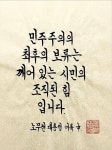 민주주의의
최후의 보루는
깨어 있는 시민의
조직된 힘
입니다.
노무현 대통령 어록 中